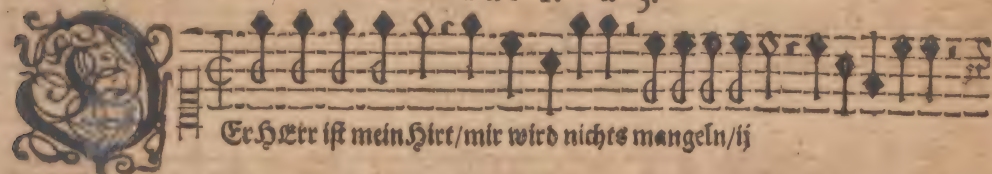 DEr HErr ist mein Hirt/mir wird nichts mangeln/ij